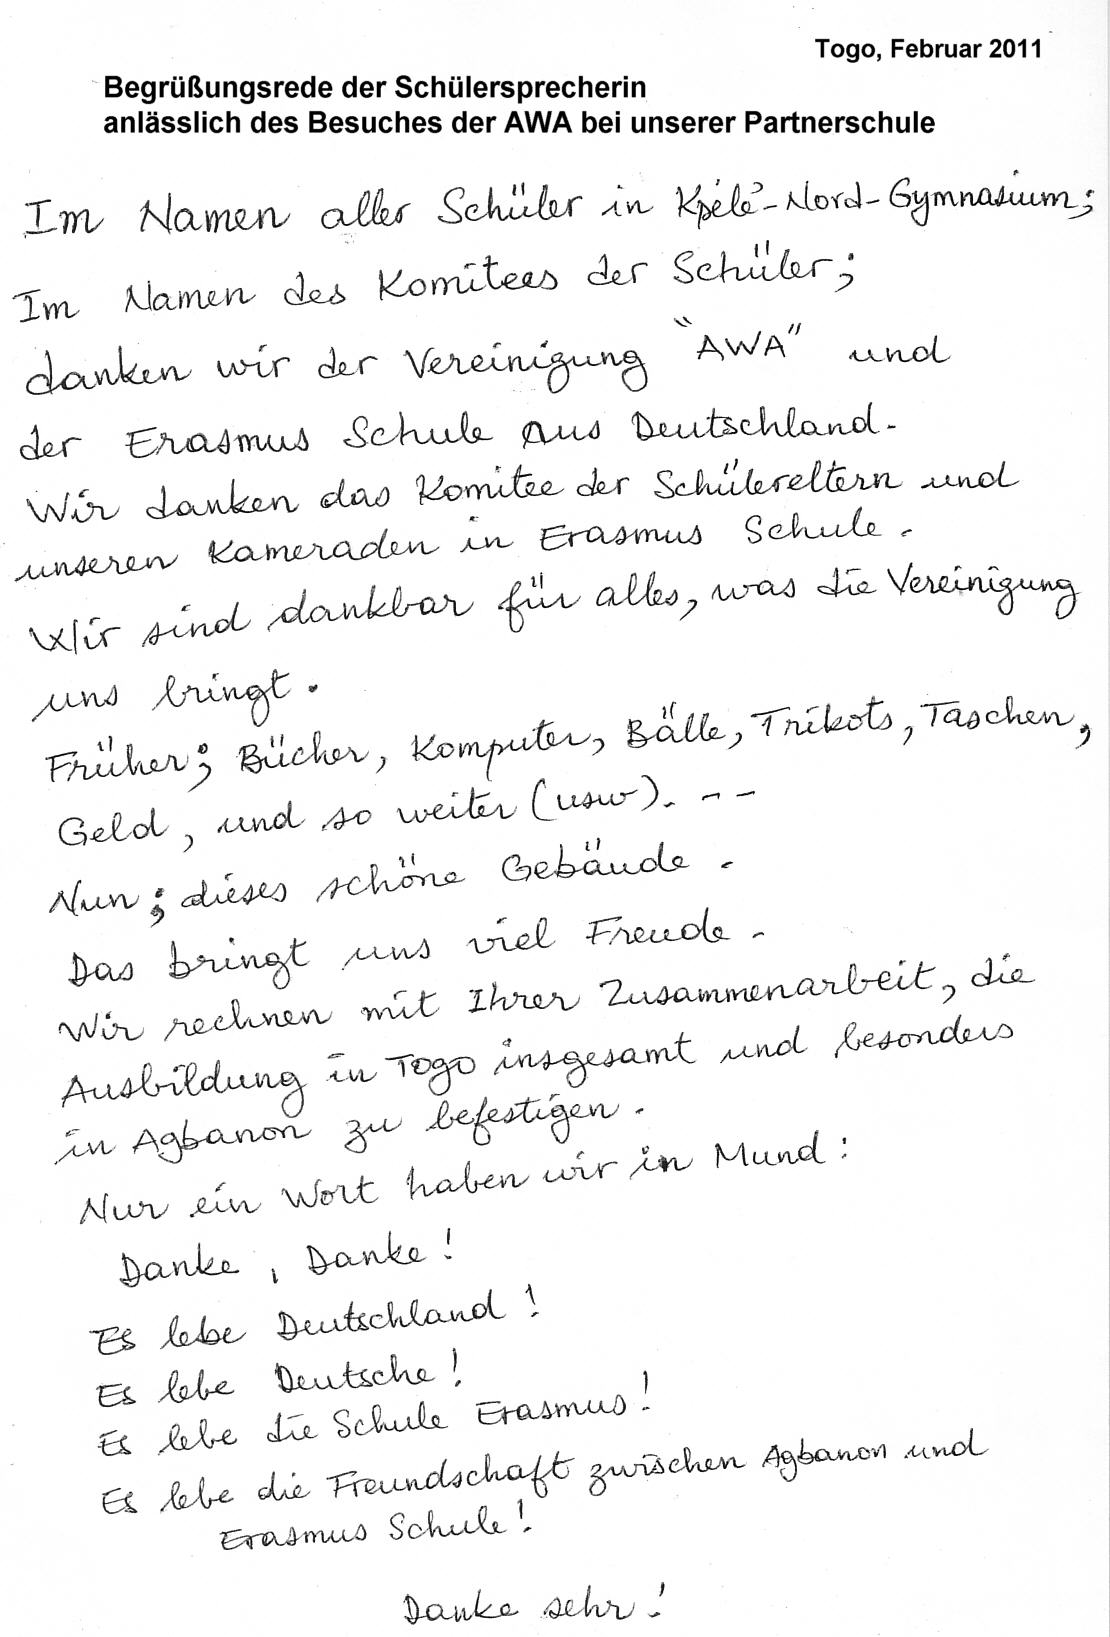 Togo, Februar 2011
Begrüßungsrede der Schülersprecherin
anlässlich des Besuches der AWA bei unserer Partnerschule
Im Namen aller Schüler in Kpélé-Nord-Gymnasium;
Im Namen des Komitees der Schüler;
danken wir der Vereinigung "AWA" und
der Erasmus Schule aus Deutschland.
Wir danken das Komitee der Schülereltern und
unseren Kameraden in Erasmus Schule.
Wir sind dankbar für alles, was die Vereinigung
uns bringt.
Früher; Bücher, Komputer, Bälle, Trikots, Taschen,
Geld, und so weiter (usw). - -
Nun; dieses schöne Gebäude.
Das bringt uns viel Freude.
Wir rechnen mit Ihrer Zusammenarbeit, die
Ausbildung in Togo insgesamt und besonders
in Agbanon zu befestigen.
Nur ein Wort haben wir in Mund:
Danke, Danke!
Es lebe Deutschland!
Es lebe Deutsche!
Es lebe die Schule Erasmus!
Es lebe die Freundschaft zwischen Agbanon und
Erasmus Schule!
Danke sehr!